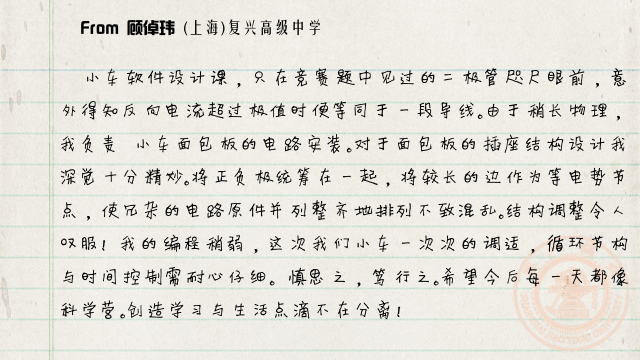 From 顾倬玮 (上海)复兴高级中学
小车软件设计课，只在竞赛题中见过的二极管咫尺眼前，意
外得知反向电流超过极值时便等同于一段导线。由于稍长物理，
我负责 小车面包板的电路安装。对于面包板的插座结构设计我
深觉十分精妙。将正负极统筹在一起，将较长的边作为等电势节
点，使冗杂的电路原件并列整齐地排列不致混乱。结构调整令人
叹服！我的编程稍弱，这次我们小车一次次的调适，循环节构
与时间控制需耐心仔细。慎思之，笃行之。希望今后每一天都像
科学营。创造学习与生活点滴不在分离！